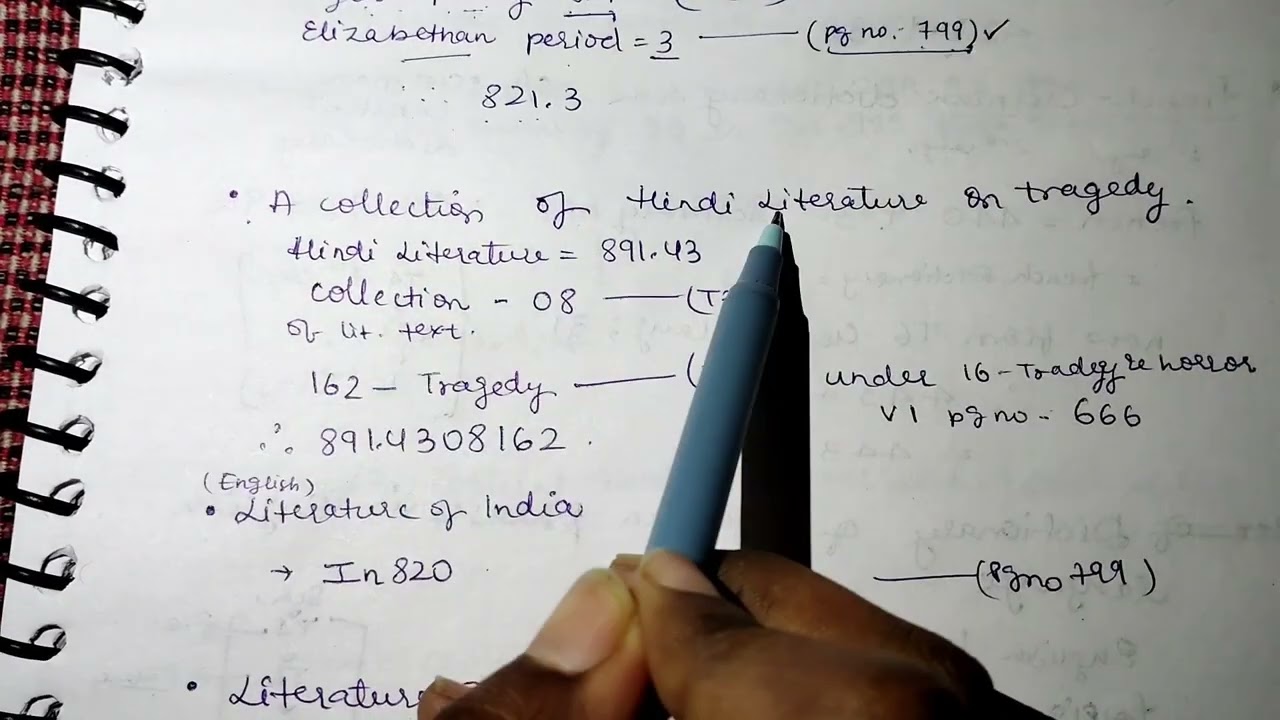 Elizabethan period = 3 —— (pg no.- 799) ✓
∴ 821.3
• A collection of Hindi Literature on tragedy.
Hindi Literature = 891.43
collection - 08 —— (T3
of lit. text.
162 - Tragedy —— ( under 16 - Tradegy & horror
V1 pg no - 666
∴ 891.4308162.
(English)
• Literature of India
→ In 820 —— (Pg no 799)
• Literature